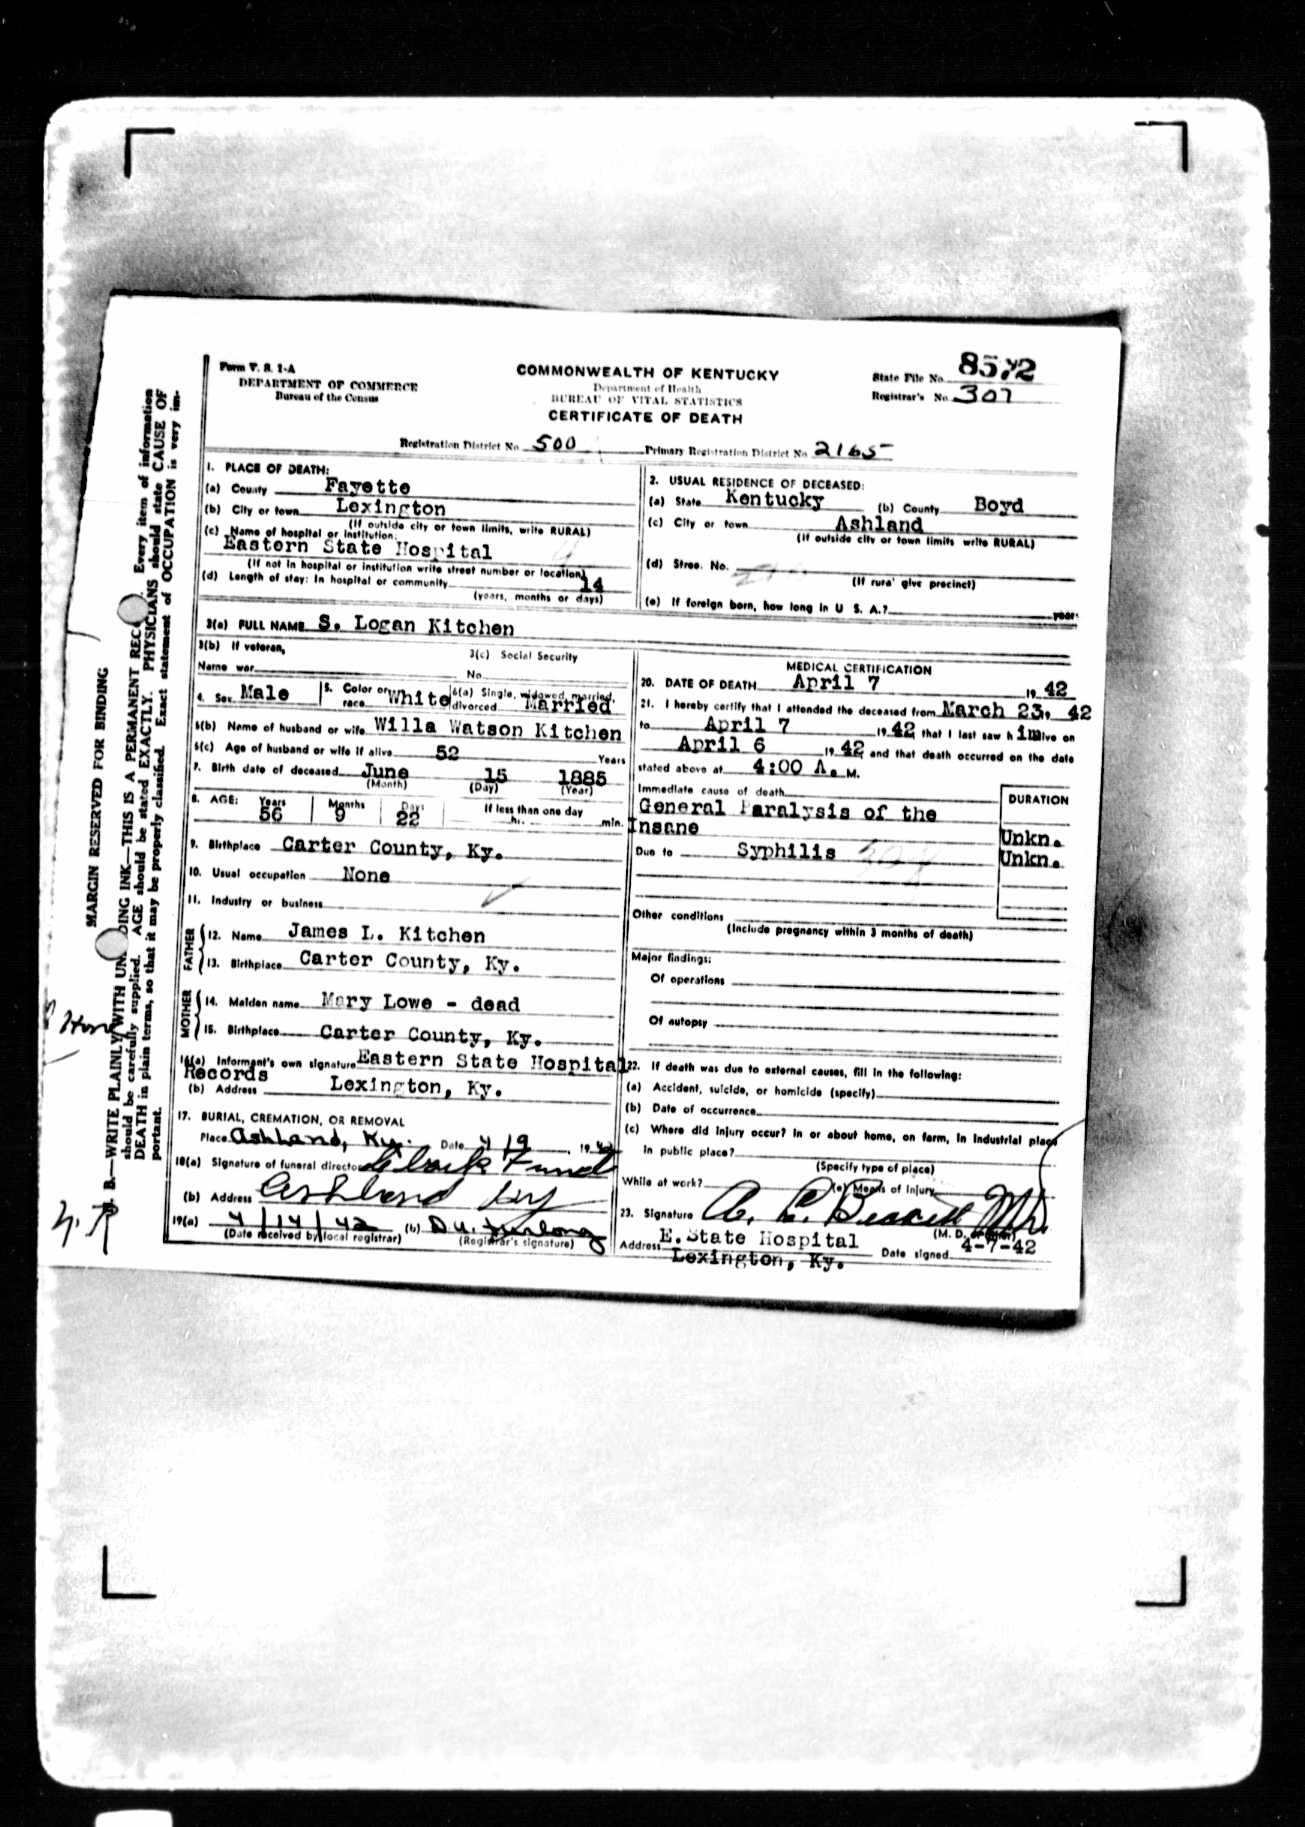 Form V. S. 1-A
DEPARTMENT OF COMMERCE
Bureau of the Census
COMMONWEALTH OF KENTUCKY
Department of Health
BUREAU OF VITAL STATISTICS
CERTIFICATE OF DEATH
State File No. 8572
Registrar's No. 307
Registration District No. 500 Primary Registration District No. 2165
MARGIN RESERVED FOR BINDING
B.—WRITE PLAINLY WITH INK—THIS IS A PERMANENT Every item of information
should be carefully supplied. AGE should be stated EXACTLY. PHYSICIANS should state CAUSE OF
DEATH in plain terms, so that it may be properly classified. Exact statement of OCCUPATION is very im-
portant.
1. PLACE OF DEATH:
(a) County Fayette
(b) City or town Lexington
(If outside city or town limits, write RURAL)
(c) Name of hospital or institution:
Eastern State Hospital
(If not in hospital or institution write street number or location)
(d) Length of stay: In hospital or community 14
(years, months or days)
2. USUAL RESIDENCE OF DECEASED:
(a) State Kentucky (b) County Boyd
(c) City or town Ashland
(If outside city or town limits write RURAL)
(d) Street No.
(If rural give precinct)
(e) If foreign born, how long in U S. A.? year
3(a) FULL NAME S. Logan Kitchen
3(b) If veteran,
Name war
3(c) Social Security
No.
4. Sex Male 5. Color or race White 6(a) Single, widowed, married, divorced Married
6(b) Name of husband or wife Willa Watson Kitchen
6(c) Age of husband or wife if alive 52 Years
7. Birth date of deceased June 15 1885
(Month) (Day) (Year)
8. AGE: Years Months Days If less than one day
56 9 22 hr. min.
9. Birthplace Carter County, Ky.
10. Usual occupation None
11. Industry or business
FATHER
12. Name James L. Kitchen
13. Birthplace Carter County, Ky.
MOTHER
14. Maiden name Mary Lowe - dead
15. Birthplace Carter County, Ky.
16(a) Informant's own signature Eastern State Hospital
Records
(b) Address Lexington, Ky.
17. BURIAL, CREMATION, OR REMOVAL
Place Ashland, Ky. Date 4/9, 1942
18(a) Signature of funeral director
(b) Address Ashland Ky
19(a) 4/14/42 (b)
(Date received by local registrar) (Registrar's signature)
MEDICAL CERTIFICATION
20. DATE OF DEATH April 7 19 42
21. I hereby certify that I attended the deceased from March 23, 42
to April 7 19 42 that I last saw h im live on
April 6 19 42 and that death occurred on the date
stated above at 4:00 A. M.
Immediate cause of death DURATION
General Paralysis of the
Insane Unkn.
Due to Syphilis Unkn.
Other conditions
(Include pregnancy within 3 months of death)
Major findings:
Of operations
Of autopsy
22. If death was due to external causes, fill in the following:
(a) Accident, suicide, or homicide (specify)
(b) Date of occurrence
(c) Where did injury occur? In or about home, on farm, in industrial place
in public place?
(Specify type of place)
While at work? (e) Means of Injury
23. Signature
(M. D. or other)
Address E. State Hospital
Lexington, Ky. Date signed 4-7-42